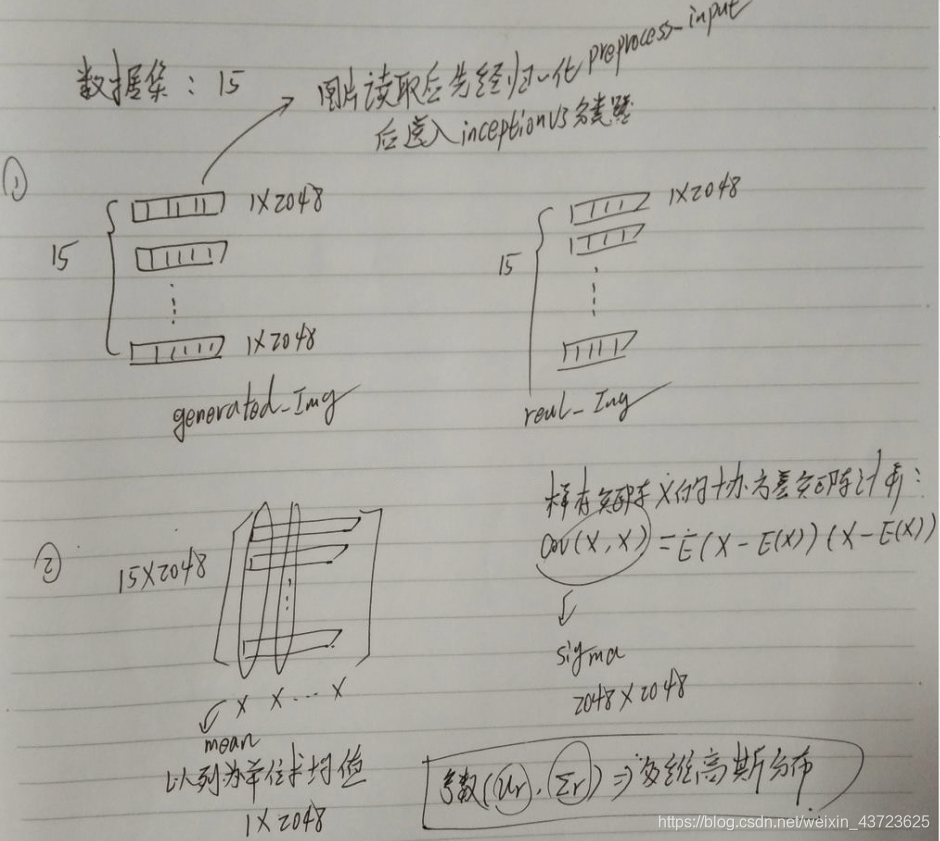 数据集：15
图片读取后先经归一化preprocess_input
后送入inceptionv3多类器
①
1X2048
15
1X2048
generated_Img
1X2048
15
real_Img
②
15X2048
X X ... X
mean
以列为单位求均值
1X2048
样本矩阵X的协方差矩阵计算：
Cov(X,X)=E(X-E(X))(X-E(X))
sigma
2048X2048
参数(ur,Σr)⇒多维高斯分布
https://blog.csdn.net/weixin_43723625